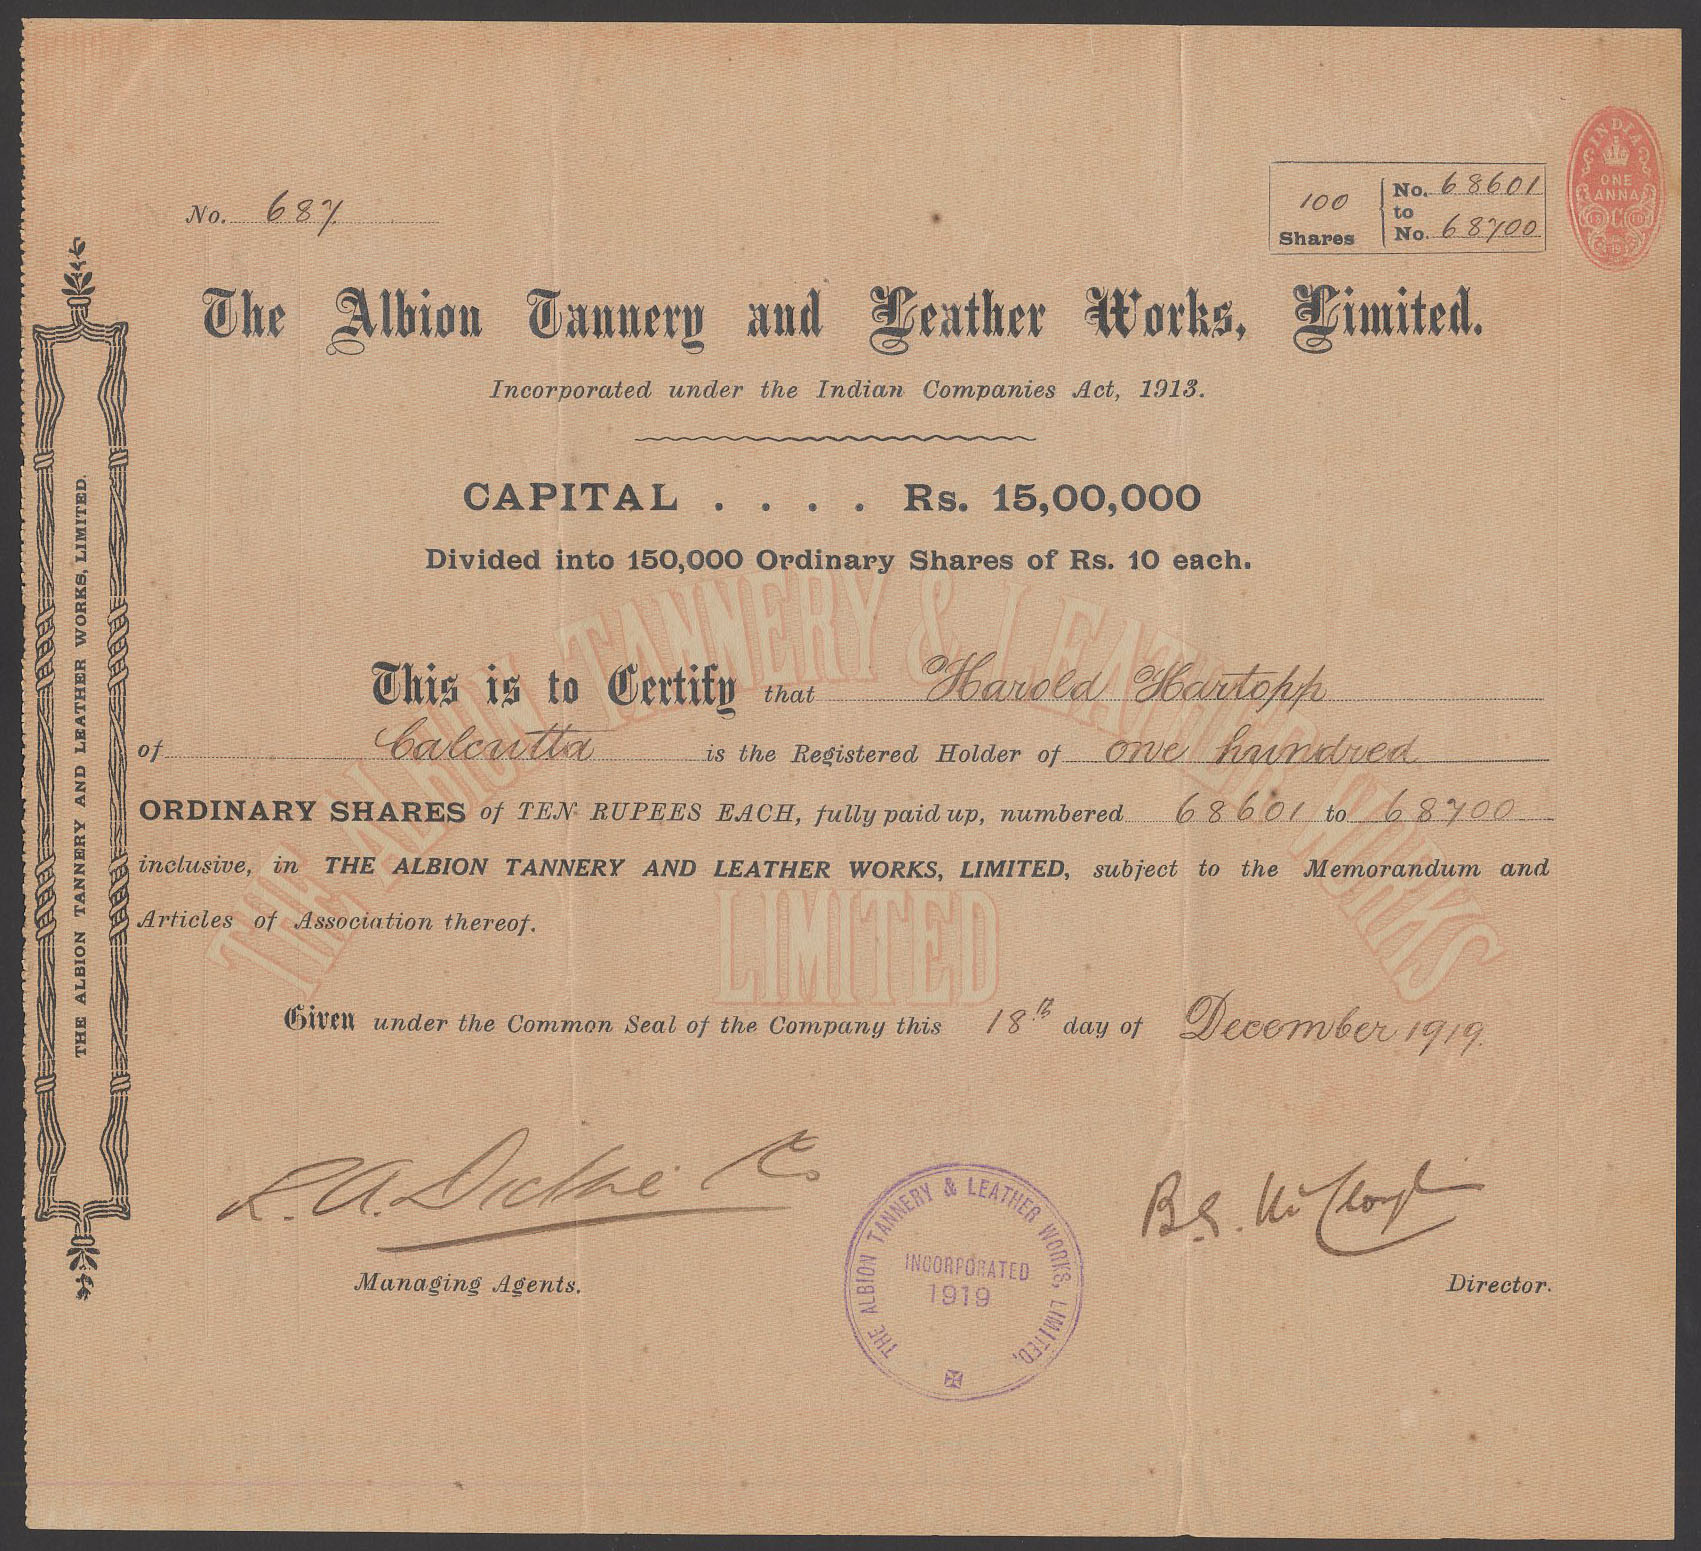 No. 687
100 Shares
No. 68601
to
No. 68700
INDIA
ONE
ANNA
The Albion Tannery and Leather Works, Limited.
Incorporated under the Indian Companies Act, 1913.
CAPITAL . . . . Rs. 15,00,000
Divided into 150,000 Ordinary Shares of Rs. 10 each.
This is to Certify that Harold Hartopp
of Calcutta is the Registered Holder of one hundred
ORDINARY SHARES of TEN RUPEES EACH, fully paid up, numbered 68601 to 68700
inclusive, in THE ALBION TANNERY AND LEATHER WORKS, LIMITED, subject to the Memorandum and
Articles of Association thereof.
Given under the Common Seal of the Company this 18th day of December 1919.
THE ALBION TANNERY & LEATHER WORKS
LIMITED
Managing Agents.
THE ALBION TANNERY & LEATHER WORKS, LIMITED,
INCORPORATED
1919
Director.
THE ALBION TANNERY AND LEATHER WORKS, LIMITED.